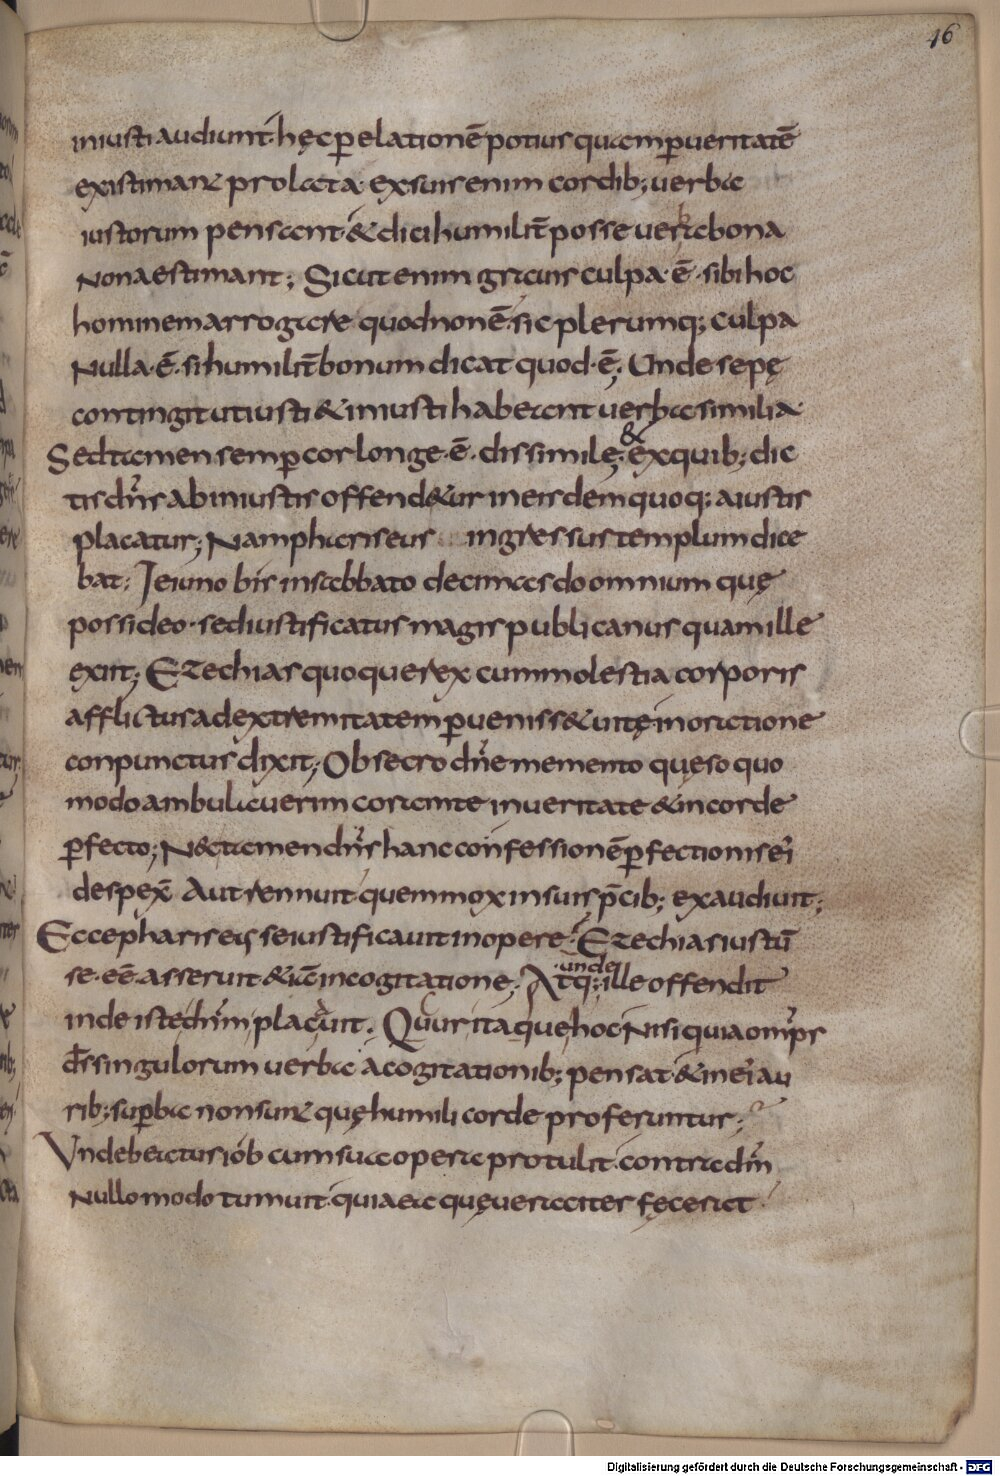 46
iniusti audiunt. hęc ꝑ elationē potius quam ꝑ ueritatē
existimant prolata. ex suis enim cordib; uerba
iustorum pensant. & dici humilit̄ posse uera bona
non aestimant; Sicut enim grauis culpa ē sibi hoc
hominem arrogare quod non ē. sic plerumq; culpa
nulla ē. si humilit̄ bonum dicat quod ē; Unde sepę
contingit ut iusti & iniusti habeant uerba similia.
Sed tamen semꝑ cor longe ē dissimilę; & ex quib; dic
tis dn̄s ab iniustis offend&ur in eisdem quoq; a iustis
placatur; Nam phariseus ingressus templum dice
bat; Ieiuno bis in sabbato decimas do omnium quę
possideo. sed iustificatus magis publicanus quam ille
exiit; Ezechias quoque rex cum molestia corporis
afflictus ad extremitatem ꝑueniss& uitę in oratione
conpunctus dixit; Obsecro dn̄e memento quęso quo
modo ambulauerim coram te in ueritate & in corde
ꝑfecto; N& tamen dn̄s hanc confessionē ꝑfectionis ei
despex̄ aut rennuit quem mox in suis p̄cib; exaudiuit;
Ecce phariseus se iustificauit in opere. Ezechias iustū
se eē asseruit & iā in cogitatione. Atq; unde ille offendit
inde iste dn̄m placauit. Cur itaque hoc nisi quia omp̄s
d̄s singulorum uerba a cogitationib; pensat. & in ei au
rib; suꝑba non sunt quę humili corde proferuntur;
Unde beatus iob cum sua opera protulit. contra dn̄m
nullo modo tumuit. quia ea quę ueraciter fecerat
Digitalisierung gefördert durch die Deutsche Forschungsgemeinschaft - DFG